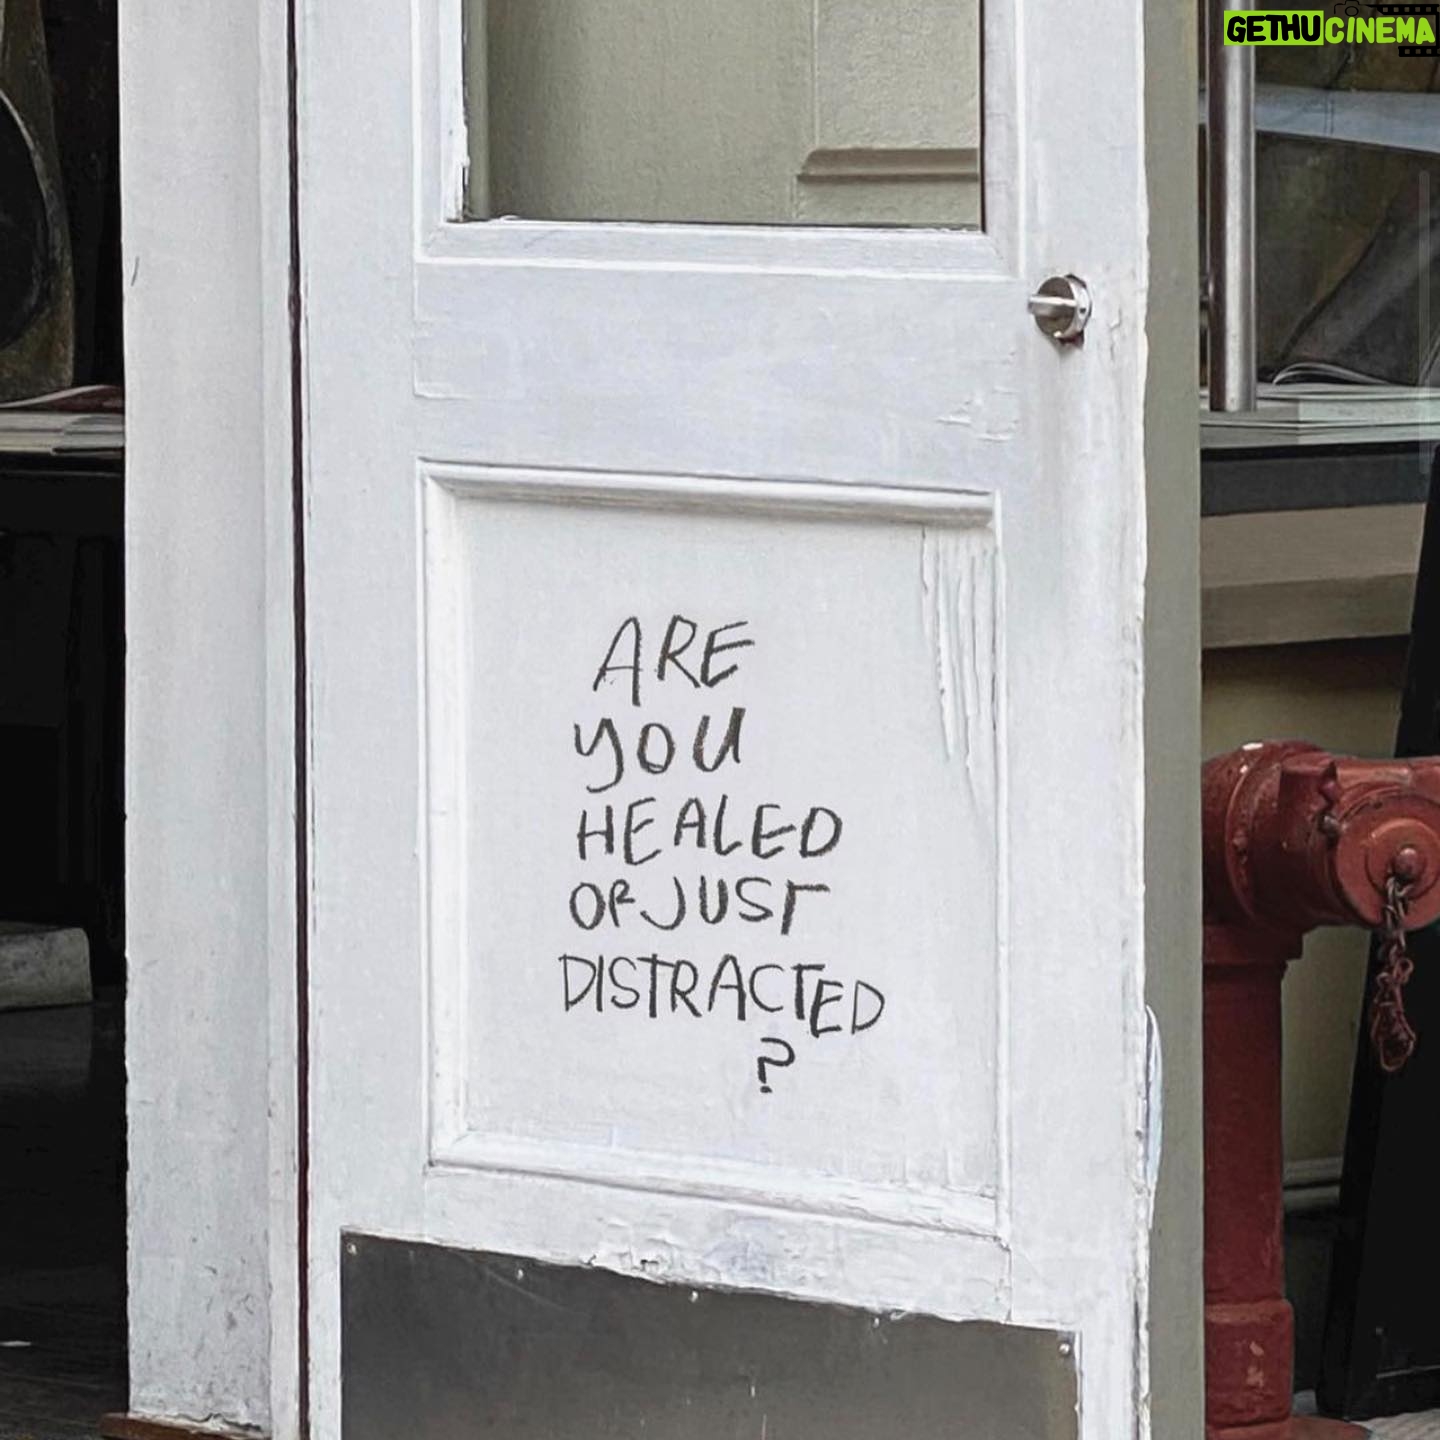 GETHUCINEMA
ARE
YOU
HEALED
OR JUST
DISTRACTED
?